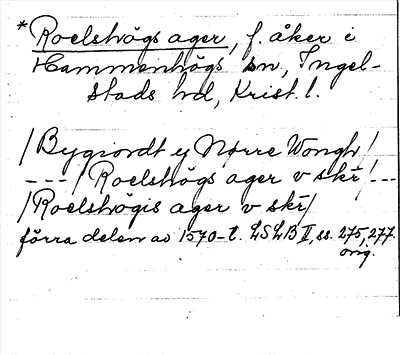 *Roelshögs ager, f. åker i
Hammenhögs sn, Ingel-
stads hd, Krist. l.
/Bygiordt ej Nørre Wongh/
---/Roelshögs ager v skr/---
/Roelshögis ager v skr/
förra delen av 1570-t. LSLB II, ss. 275, 277.
orig.